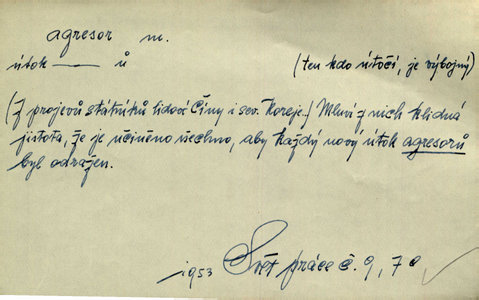 agresor m.
útok —— ů (ten kdo útočí, je výbojný)
(Z projevů státníků lidové Číny i sev. Koreje.) Mluví z nich klidná
jistota, že je učiněno všechno, aby každý nový útok agresorů
byl odražen.
1953 Svět práce č. 9, 7